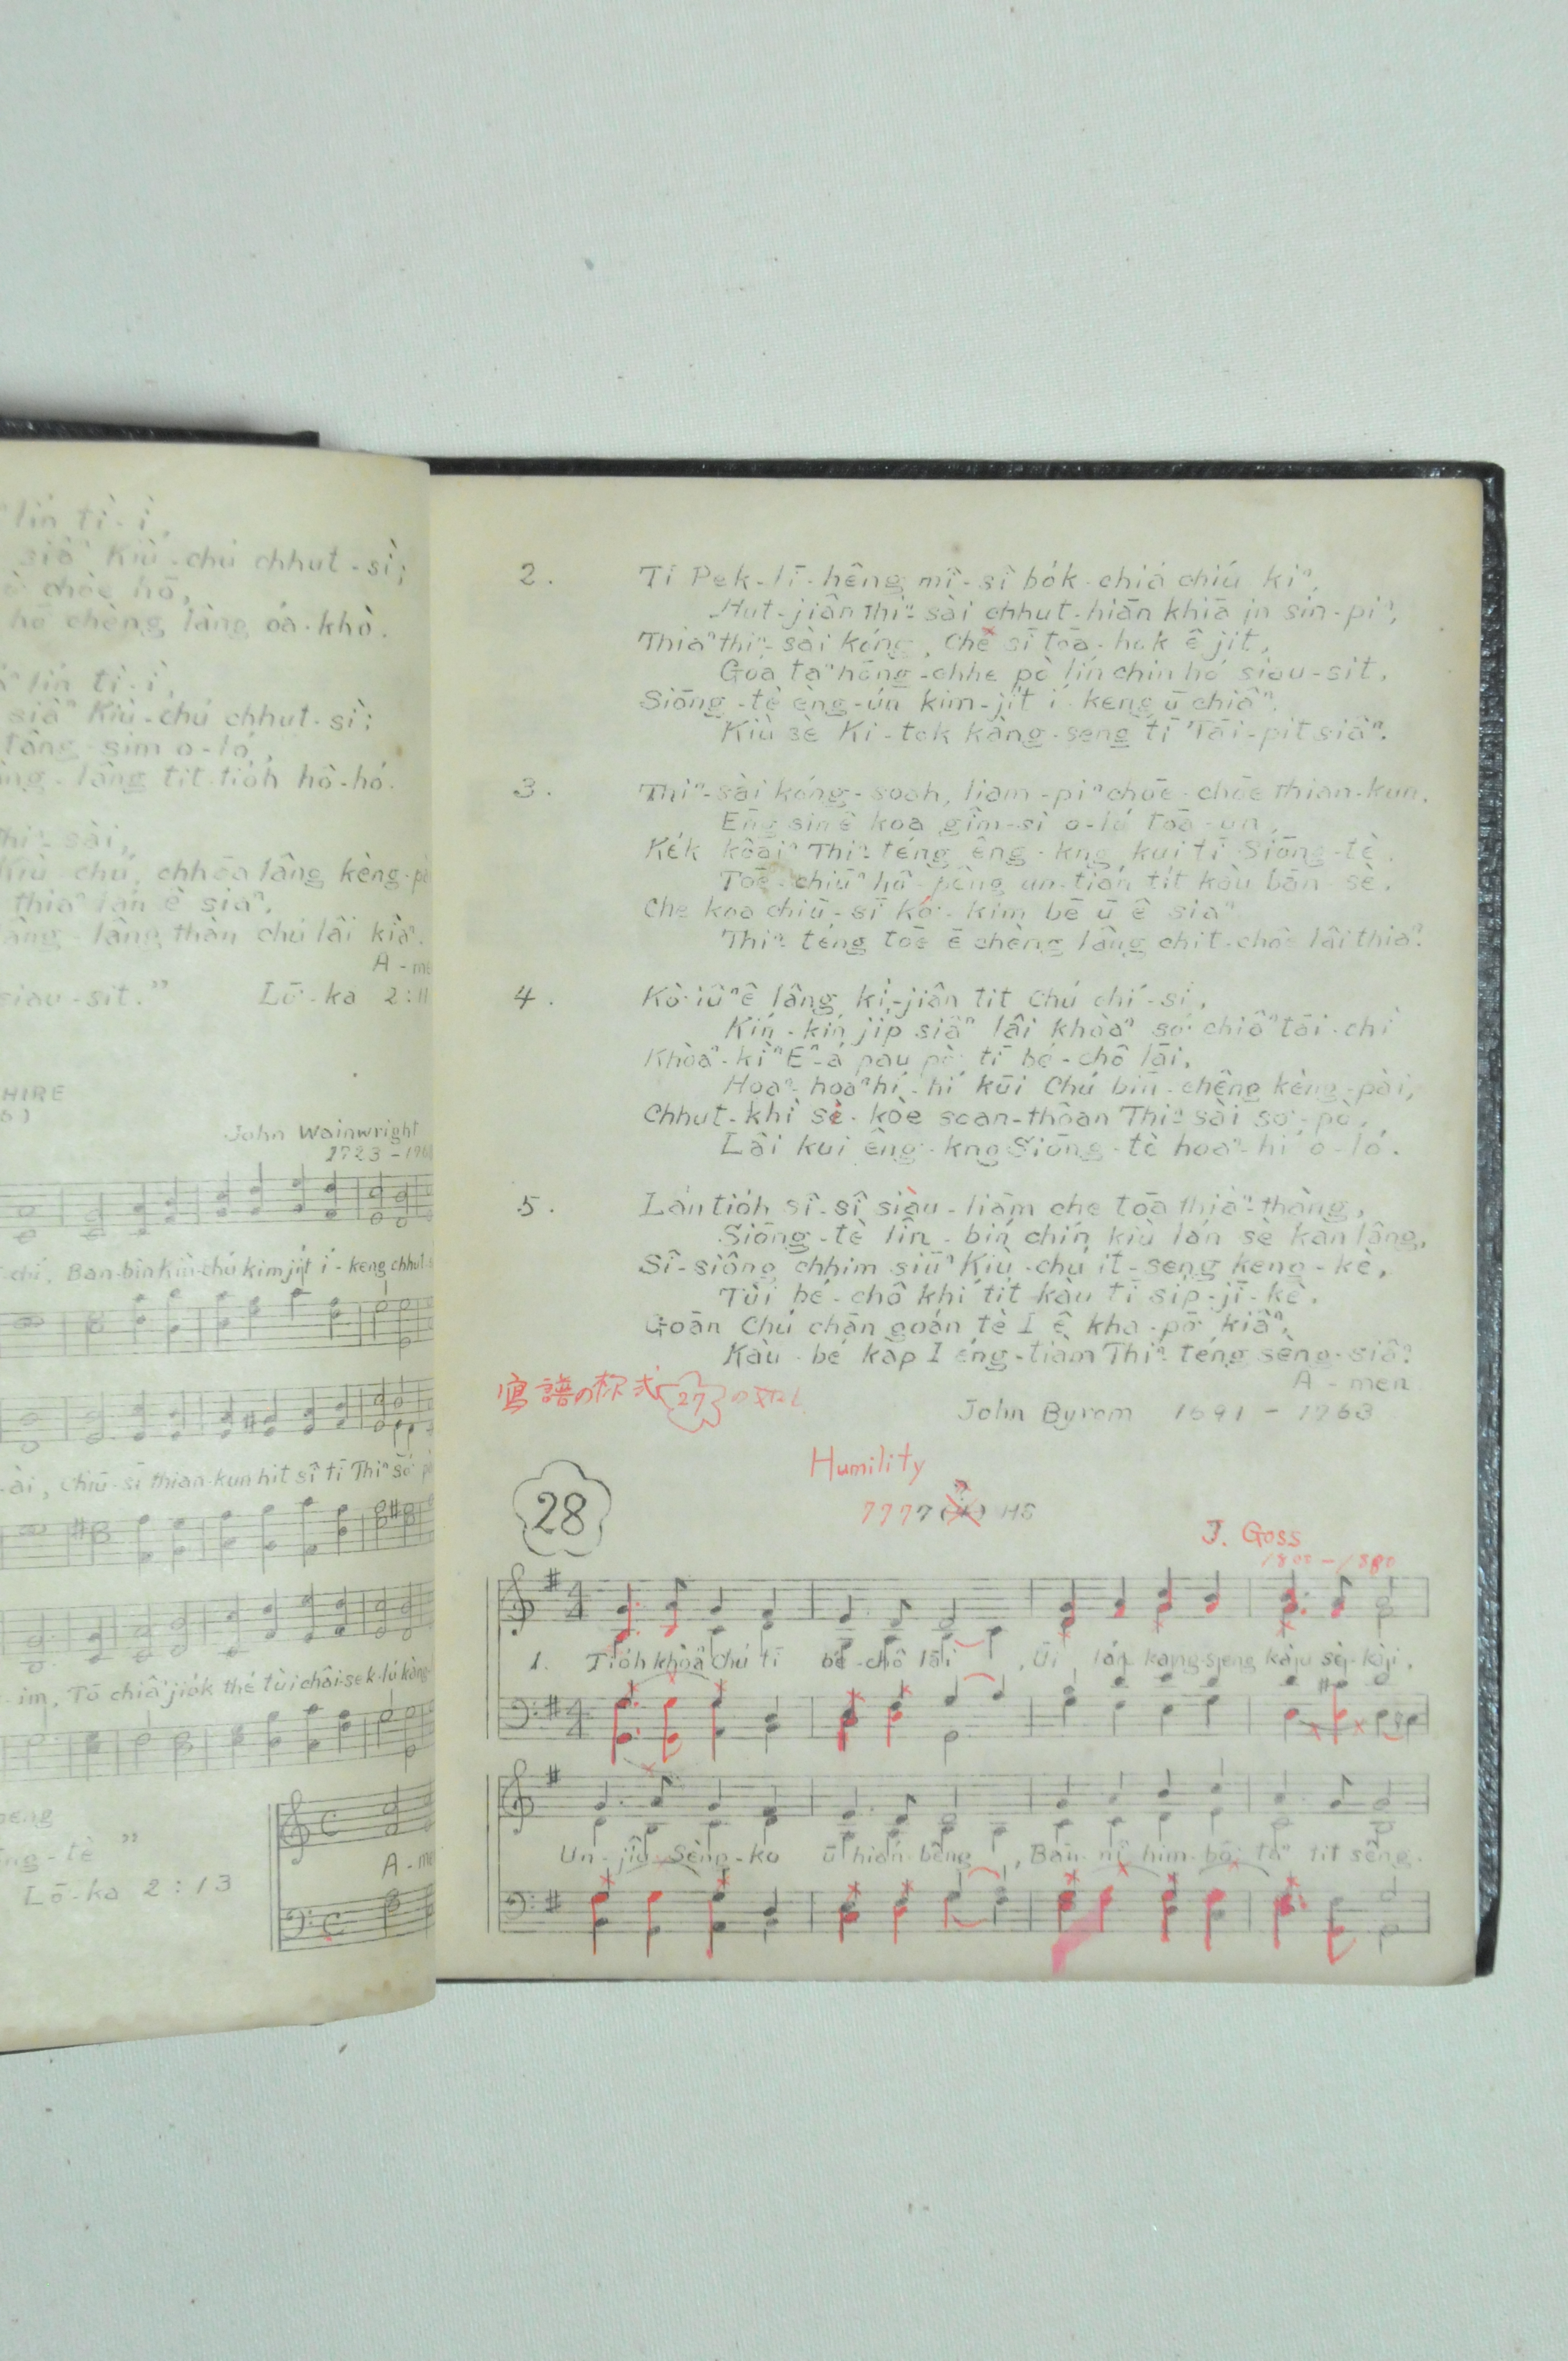 lín tì-ì,
siâⁿ Kiù-chú chhut-sì;
chòe hō,
hō chèng lâng óa-khò.
lín tì-ì,
siâⁿ Kiù-chú chhut-sì;
tâng-sim o-ló,
lâng tit-tio̍h hô-hó.
Thiⁿ-sài,
Kiù chú, chhōa lâng kèng-pài
thiaⁿ lán ê siaⁿ,
lâng-lâng thàn chú lâi kiâⁿ.
A-me
siau-sit." Lō͘-ka 2:11
HIRE
John Wainwright
1723-176
chí, Ban-bîn Kiù-chú kim-ji̍t í-keng chhut-
-ài, Chiū-sī thian-kun hit sî tī Thiⁿ só͘
-im, Tō chiâⁿ jio̍k thé tùi chāi-sek-lú kàng-
tè"
Lō͘-ka 2:13
A-me
2. Tī Pek-lī-hêng mî-sî bo̍k-chiá chiú kiⁿ,
Hut-jiân Thiⁿ-sài chhut-hiān khiā in sin-piⁿ,
Thiaⁿ thiⁿ-sài kóng, Che sī toā-hok ê ji̍t,
Goá taⁿ hōng-chhe pò lín chin hó siau-sit,
Siōng-tè èng-ún kim-ji̍t í-keng ū chiâⁿ.
Kiù sè Ki-tok kàng-seng tī Tāi-pit siâⁿ.
3. Thiⁿ-sài kóng-soah, liam-piⁿ chōe-chōe thian-kun,
Eng sin ê koa gîm-sì o-ló toā-un,
Ke̍k koâiⁿ Thiⁿ-téng êng-kng kui tī Siōng-tè.
Toē-chiūⁿ hô-pêng un-tián tit kàu bān-sè.
Che koa chiū-sī kó͘-kim bē ū ê siaⁿ
Thiⁿ-téng toē ē chèng lâng chit-chôe lâi thiaⁿ.
4. Kò͘-iûⁿ ê lâng kì-jiân tit Chú chí-sī,
Kín-kín ji̍p siâⁿ lâi khòaⁿ só͘ chiâⁿ tāi-chì
Khòaⁿ-kìⁿ Eⁿ-á pau pò͘ tī bé-chô lāi,
Hoaⁿ-hoaⁿ hí-hí kūi Chú bīn-chêng kèng-pài,
Chhut-khì sè-kòe soan-thoân Thiⁿ-sài só͘-pò,
Lâi kui êng-kng Siōng-tè hoaⁿ-hí o-ló.
5. Lán tio̍h sî-sî siàu-liām che toā thiàⁿ-thàng,
Siōng-tè lîn-bín chín kiù lán sè kan lâng,
Sî-siông chhim siūⁿ Kiù-chú it-seng keng-kè,
Tùi bé-chô khí tit kàu tī si̍p-jī-kè.
Goān Chú chān goán tè I ê kha-pō͘ kiâⁿ,
Kàu-bé kap I éng-tiàm Thiⁿ-téng sèng-siâⁿ.
A-men
John Byrom 1691-1763
寫譜の樣式 27
28
Humility
7777 H8
J. Goss
1800-1880
1. Tio̍h khòaⁿ Chú tī bé-chô lāi, Ūi lán kàng-seng kàu sè-kài,
Un-jiû Sèng-ko ū hián-bêng, Bān-nî him-bō͘ taⁿ tit sêng.